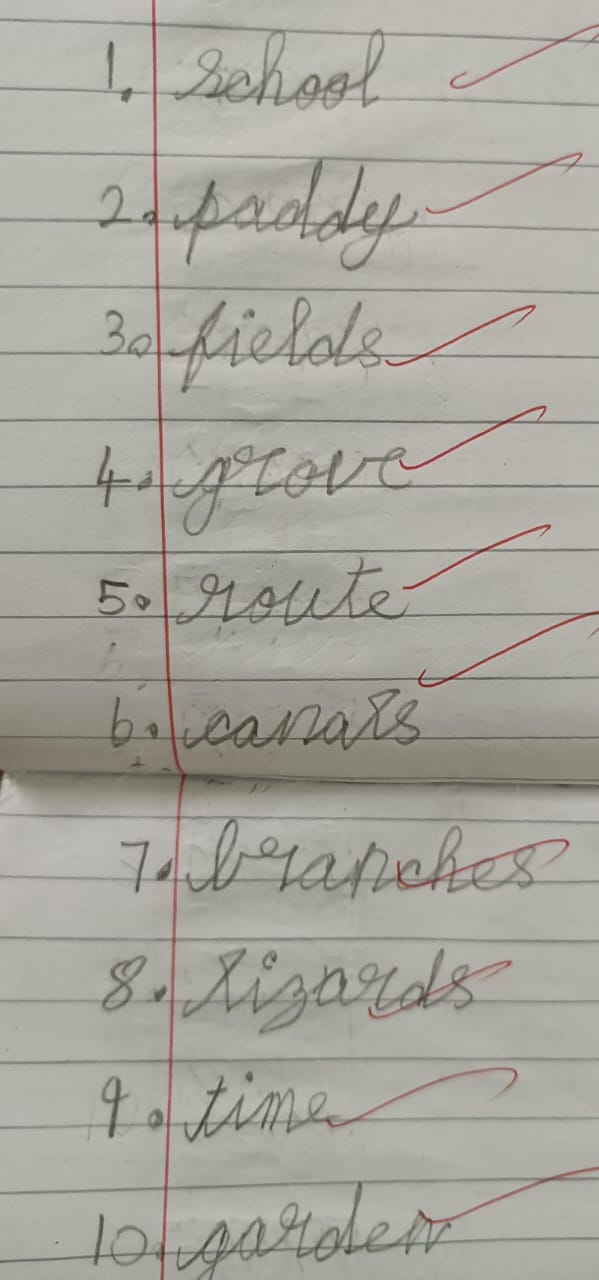 1. school
2. paddy
3. fields
4. grove
5. route
6. canals
7. branches
8. lizards
9. time
10. garden